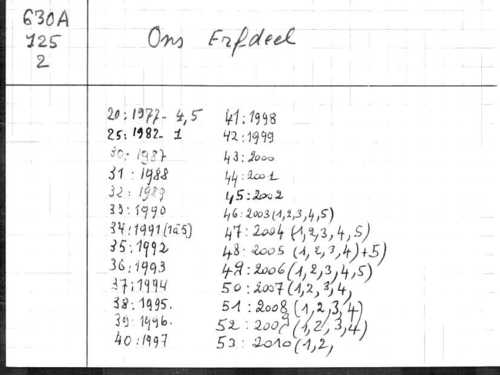 630A
125
2
Ons Erfdeel
20:1977- 4,5
25:1982- 1
30:1987
31:1988
32:1989
33:1990
34:1991(1à5)
35:1992
36:1993
37:1994
38:1995.
39:1996.
40:1997
41:1998
42:1999
43:2000
44:2001
45:2002
46:2003(1,2,3,4,5)
47:2004(1,2,3,4,5)
48:2005 (1,2,3,4)+5)
49:2006(1,2,3,4,5)
50:2007(1,2,3,4,
51:2008(1,2,3,4)
52:2009(1,2,3,4)
53:2010(1,2,